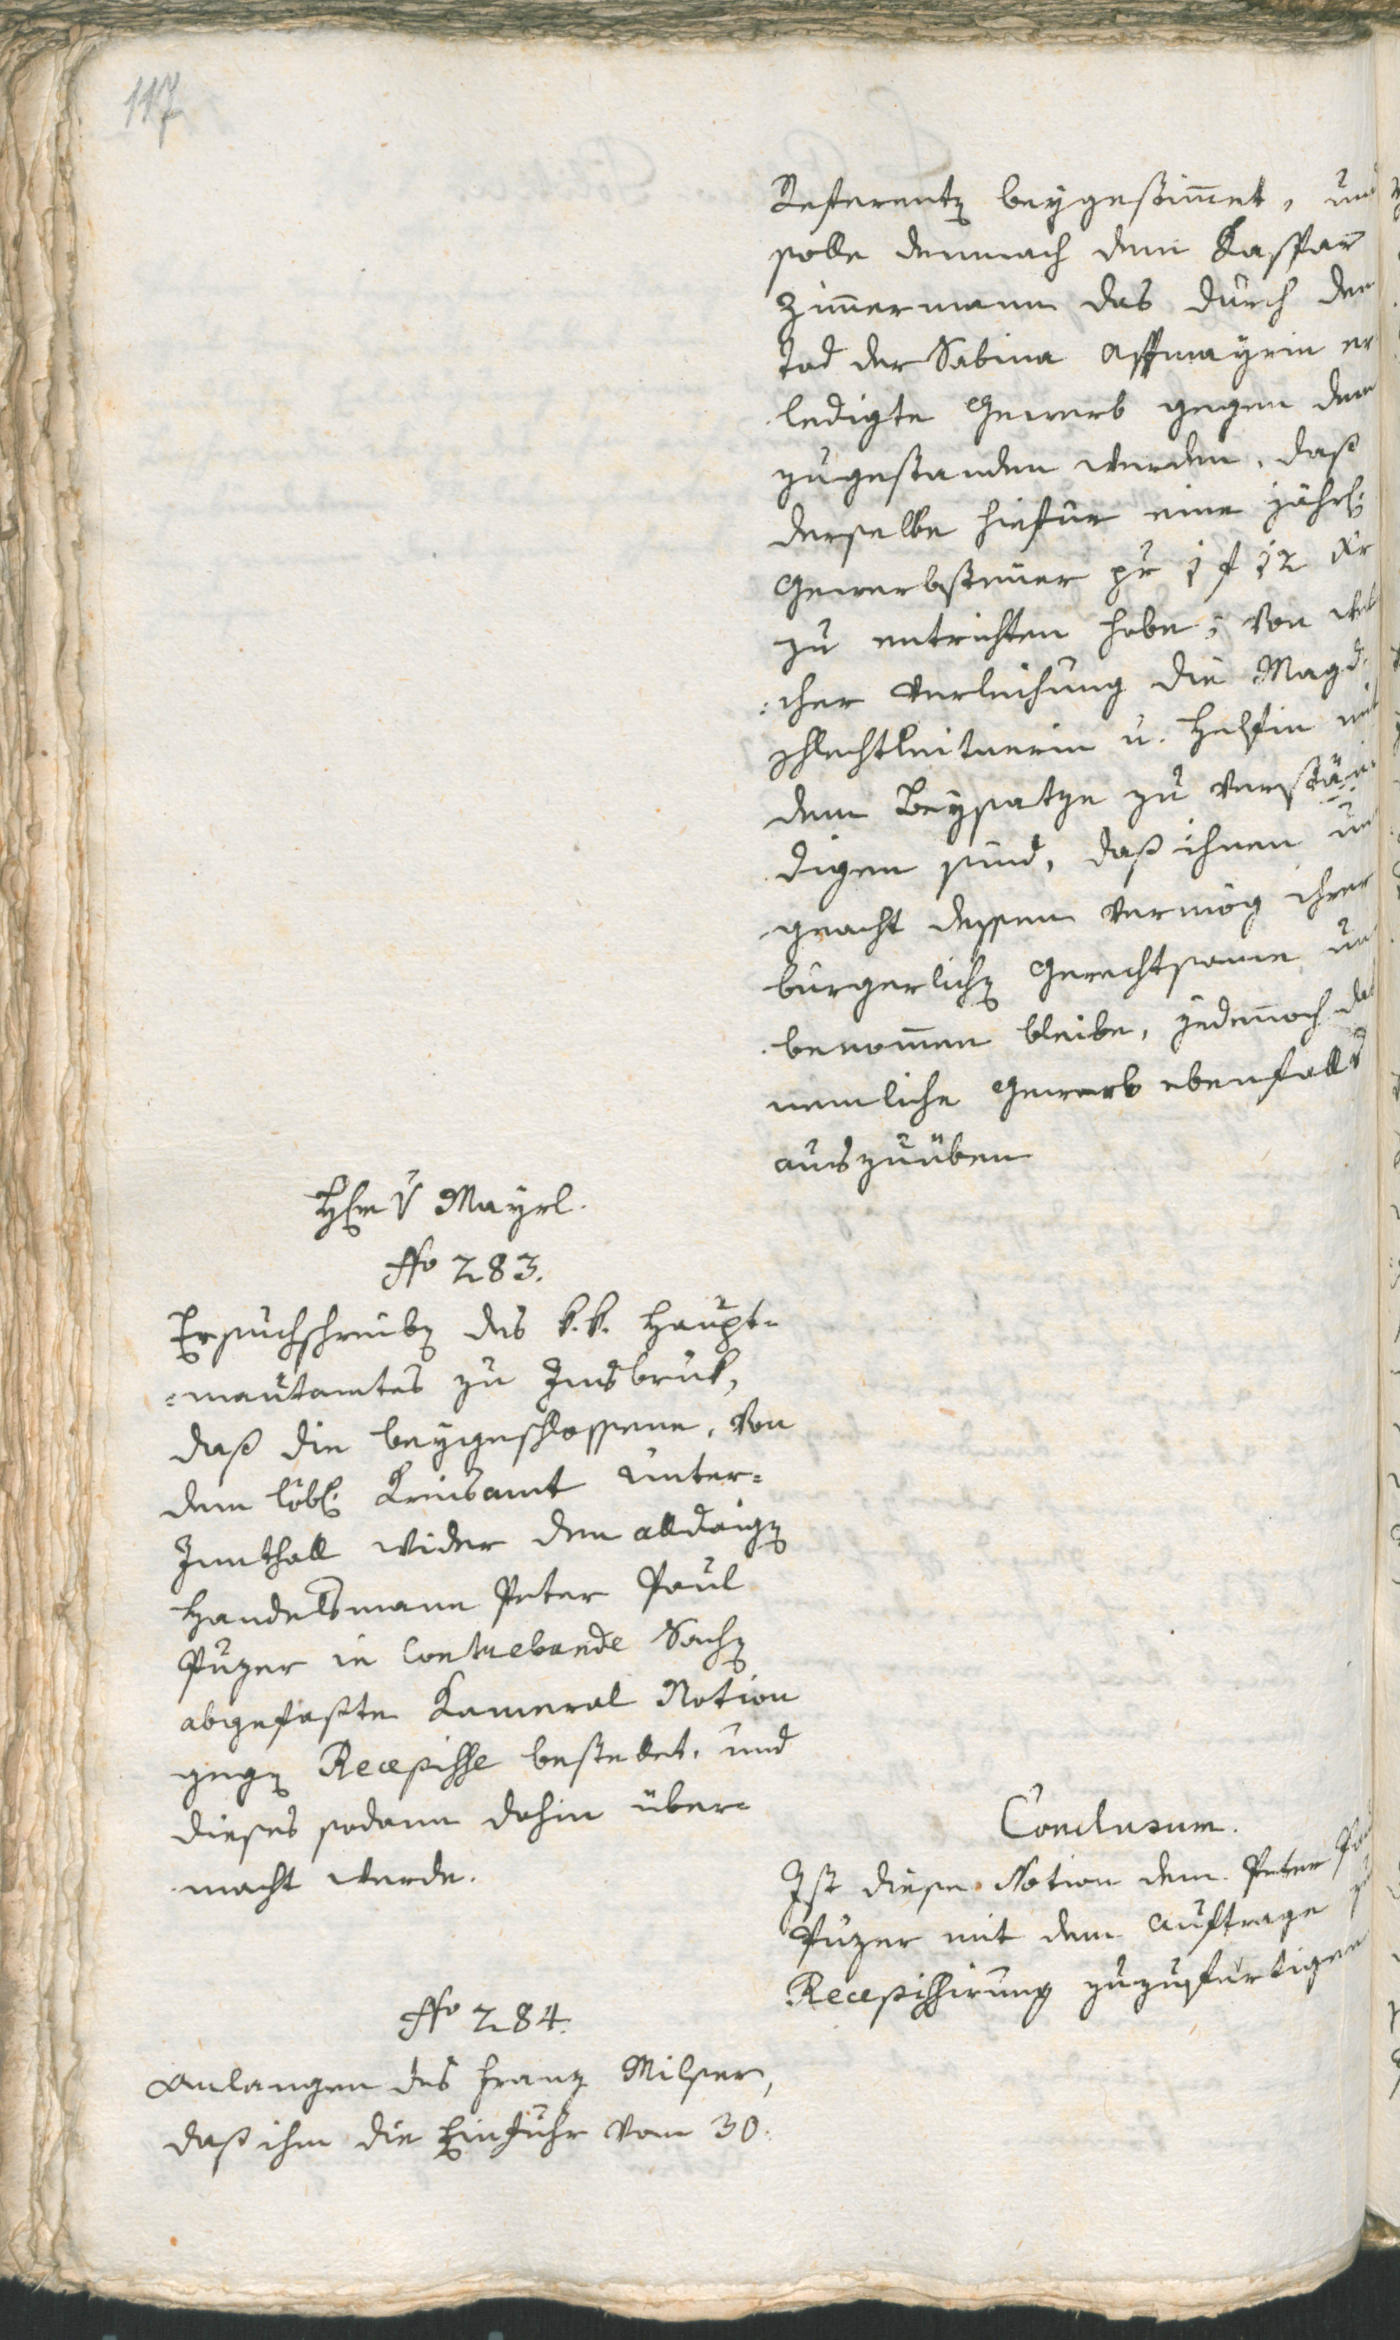 117
Referenten beygestimmet, und
solle demnach dem Kaspar
Zimmermann das durch den
Tod der Sabina Assmayrin er
ledigte Gewerb gegen deme
zugestanden werden, daß
derselbe hiefür eine jährl:
Gewerbsteuer pr 1 f 12 xr
zu entrichten habe; von wel
:cher Verleihung die Magd:
Schlechtleitnerin u. Hessin mit
dem Beysatze zu verstän:
digen sind, daß ihnen un
geacht dessen vermög ihrer
bürgerlichen Gerechtsame un
benommen bleibe, jedennoch das
nemliche Gewerb ebenfalls
auszuüben
Hr. v Mayrl.
No 283.
Ersuchschreiben des k.k. Haupt=
=mautamtes zu Innsbruk,
daß die beygeschlossene, von
dem löbl: Kreisamt Unter=
Innthall wider den alldaigen
Handelsmann Peter Paul
Puzer in Contrebande Sachen
abgefaßte Kameral Notion
gegen Recepisse bestellet, und
dieses sodann dahin über=
macht werde.
Conclusum.
Ist diese Notion dem Peter Paul
Puzer mit dem Auftrage zu
Recepissirung zuzufertigen
No 284.
Anlangen des Franz Milser,
daß ihm die Einfuhr von 30.